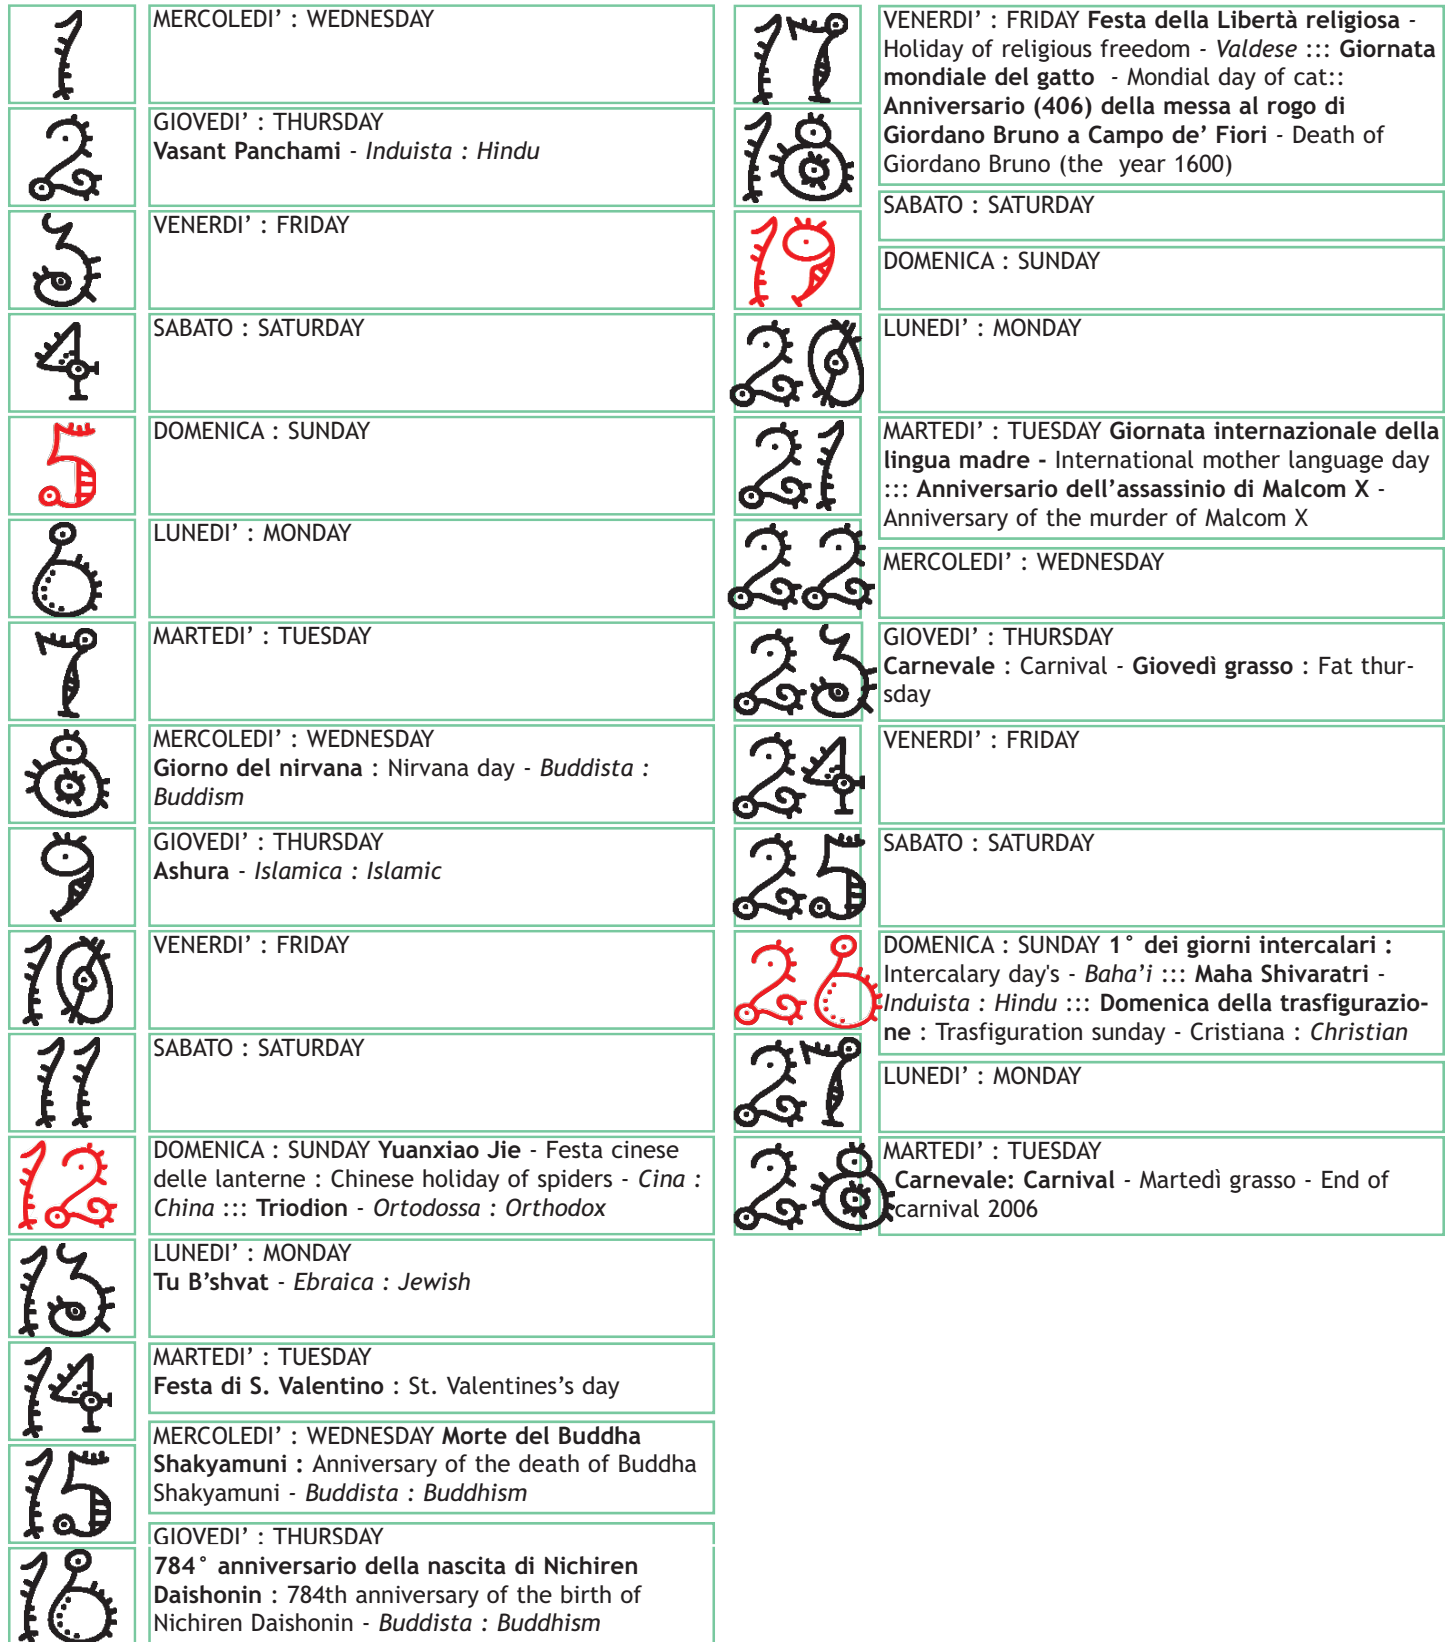 1
MERCOLEDI’ : WEDNESDAY
2
GIOVEDI’ : THURSDAY
Vasant Panchami - Induista : Hindu
3
VENERDI’ : FRIDAY
4
SABATO : SATURDAY
5
DOMENICA : SUNDAY
6
LUNEDI’ : MONDAY
7
MARTEDI’ : TUESDAY
8
MERCOLEDI’ : WEDNESDAY
Giorno del nirvana : Nirvana day - Buddista :
Buddism
9
GIOVEDI’ : THURSDAY
Ashura - Islamica : Islamic
10
VENERDI’ : FRIDAY
11
SABATO : SATURDAY
12
DOMENICA : SUNDAY Yuanxiao Jie - Festa cinese
delle lanterne : Chinese holiday of spiders - Cina :
China ::: Triodion - Ortodossa : Orthodox
13
LUNEDI’ : MONDAY
Tu B’shvat - Ebraica : Jewish
14
MARTEDI’ : TUESDAY
Festa di S. Valentino : St. Valentines’s day
15
MERCOLEDI’ : WEDNESDAY Morte del Buddha
Shakyamuni : Anniversary of the death of Buddha
Shakyamuni - Buddista : Buddhism
16
GIOVEDI’ : THURSDAY
784° anniversario della nascita di Nichiren
Daishonin : 784th anniversary of the birth of
Nichiren Daishonin - Buddista : Buddhism
17
VENERDI’ : FRIDAY Festa della Libertà religiosa -
Holiday of religious freedom - Valdese ::: Giornata
mondiale del gatto - Mondial day of cat::
Anniversario (406) della messa al rogo di
Giordano Bruno a Campo de’ Fiori - Death of
Giordano Bruno (the year 1600)
18
SABATO : SATURDAY
19
DOMENICA : SUNDAY
20
LUNEDI’ : MONDAY
21
MARTEDI’ : TUESDAY Giornata internazionale della
lingua madre - International mother language day
::: Anniversario dell’assassinio di Malcom X -
Anniversary of the murder of Malcom X
22
MERCOLEDI’ : WEDNESDAY
23
GIOVEDI’ : THURSDAY
Carnevale : Carnival - Giovedì grasso : Fat thur-
sday
24
VENERDI’ : FRIDAY
25
SABATO : SATURDAY
26
DOMENICA : SUNDAY 1° dei giorni intercalari :
Intercalary day's - Baha’i ::: Maha Shivaratri -
Induista : Hindu ::: Domenica della trasfigurazio-
ne : Trasfiguration sunday - Cristiana : Christian
27
LUNEDI’ : MONDAY
28
MARTEDI’ : TUESDAY
Carnevale: Carnival - Martedì grasso - End of
carnival 2006